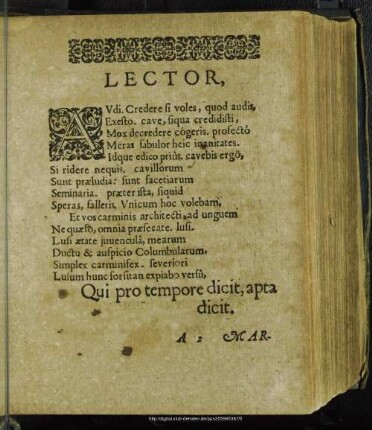 LECTOR,
AVdi. Credere si voles, quod audis,
Exesto. cave, siqua credidisti,
Mox decredere cogeris. profectò
Meras fabulor heic inanitates.
Idque edico priùs. cavebis ergò,
Si ridere nequis. cavillorum
Sunt præludia: sunt facetiarum
Seminaria. præter ista, siquid
Speras, falleris. Vnicum hoc volebam,
Et vos carminis architecti, ad unguem
Ne quæso, omnia præsecate. lusi.
Lusi ætate juvenculâ, mearum
Ductu & auspicio Columbularum,
Simplex carminifex. severiori
Lusum hunc forsitan expiabo versu,
Qui pro tempore dicit, apta
dicit.
A 2 MAR-